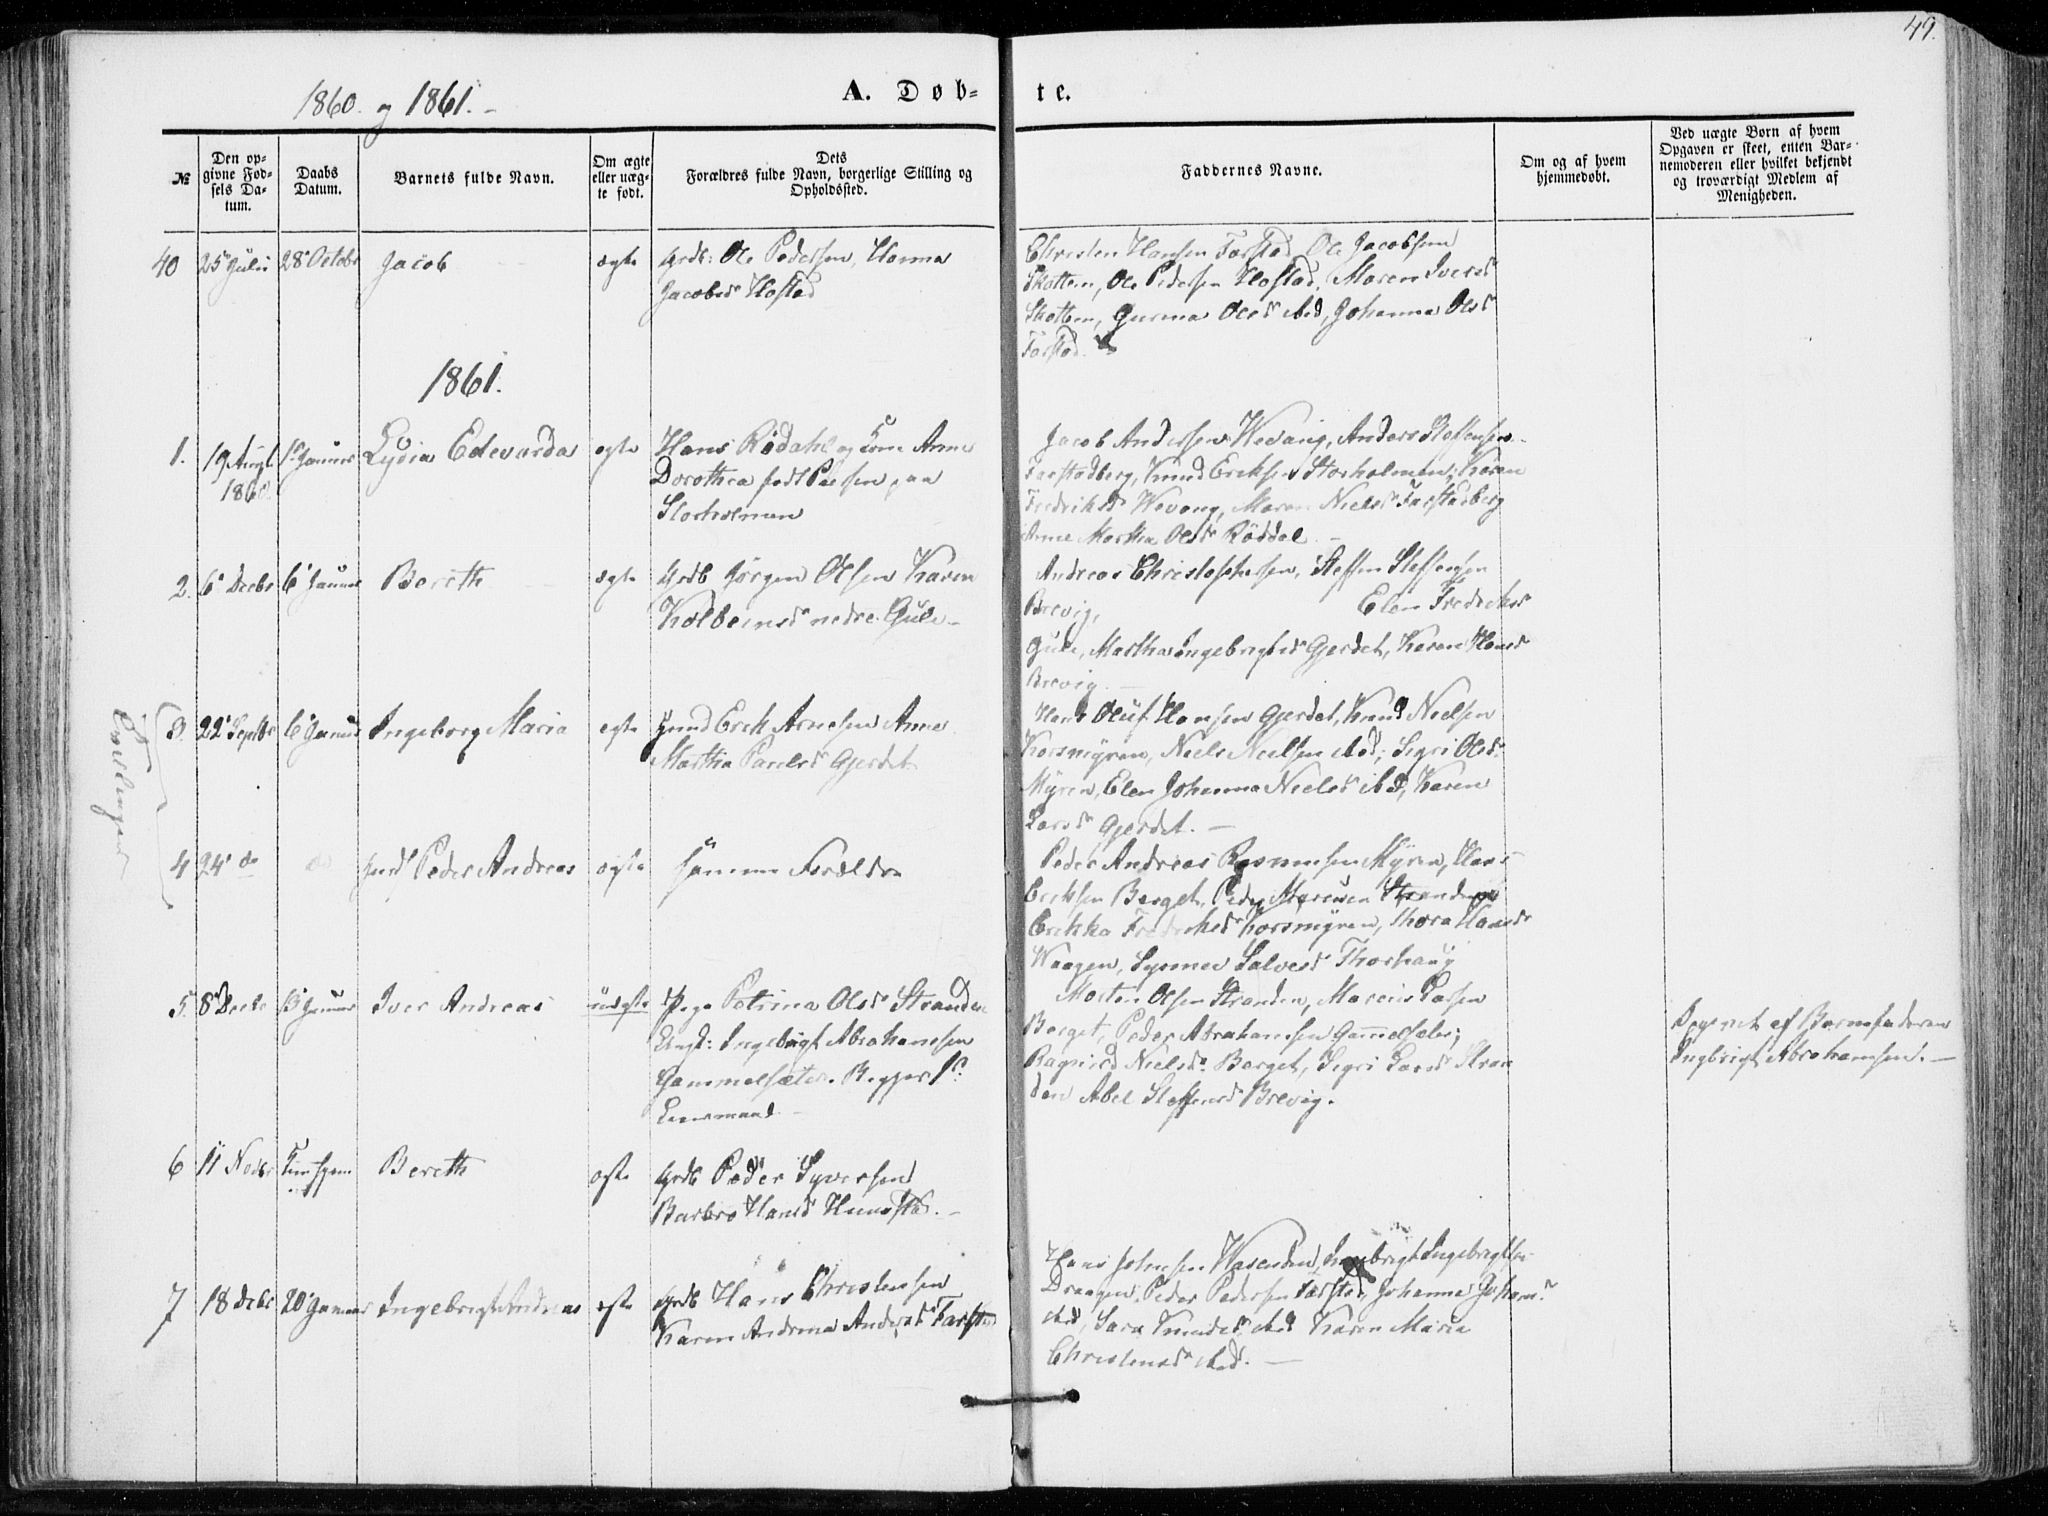 49.
1860. og 1861. -
A. Døb-
te.
№
Den op-
givne Fød-
sels Da-
tum.
Daabs
Datum.
Barnets fulde Navn.
Om ægte
eller uæg-
te født.
Dets
Forældres fulde Navn, borgerlige Stilling og
Opholdssted.
Faddernes Navne.
Om og af hvem
hjemmedøbt.
Ved uægte Børn af hvem
Opgaven er skeet, enten Bar-
nemoderen eller hvilket bekjendt
og troværdigt Medlem af
Menigheden.
40 25 Juli 28 Octobr Jacob ægte Grdb: Ole Pedersen, Hanna
Jacobsd Hostad
Christen Hansen Farstad Ole Jacobsen
Skottem, Ole Pedersen Hostad, Maren Iversd
Skottem, Gurina Olesd ibid, Johanna Olsd
Farstad.
1861.
1. 19 Augt
1860.
1 Januar Lydia Edevarda ægte Hans Rødahl og Kone Anne
Dorothea født Paasen paa
Storholmen
Jacob Andersen Wevang, Anders Steffensen
Farstadberg, Knud Eriksen Storholmen, Karen
Fredriksd Wevang, Maren Nielsd Farstadberg
Anne Martha Olsd Røddal. -
2. 6 Decbr 6 Januar Bereth ægte Grdb Jørgen Olsen Karen
Kolbeinsd nedre Gule -
Andreas Christophersen, Steffen Steffensen
Brevig, Elen Fredriksd
Gule, Martha Ingebrigtsd Gjerdet, Karen Hansd
Brevig. -
Tvillinger
3. 22 Septbr 6 Januar Ingeborg Maria ægte Erik Arnesen Anne
Martha Paulsd Gjerdet
Hans Oluf Hansen Gjerdet, Knud Nielsen
Korsmyren, Niels Nielsen ibid, Sigri Olsd
Myren, Elen Johanna Nielsd ibid, Karen
Larsd Gjerdet. -
4 24 do do Peder Andreas ægte samme Forældre
Peder Andreas Rasmusen Myren, Hans
Eriksen Berget, Peder Marcusen Stranden
Erikka Fredriksd Korsmyren, Thora Hansd
Waagen, Synnev Salvesd Thorhaug
5. 8 Decbr 13 Januar Iver Andreas uægte Pige Petrina Olsd Stranden
Ungk: Ingebrigt Abrahamsen
Gammelsæter. Begges 1
Leiermaal -
Morten Olsen Stranden, Marcus Larsen
Berget, Peder Abrahamsen Gammelsæter;
Ragnild Nielsd Berget, Sigri Larsd Stran
den Abel Steffensd Brevig.
Opgivet af Barnefaderen
Ingebrigt Abrahamsen. -
6 11 Novbr Bereth ægte Grdb Peder Syversen
Barbro Hansd Hunstad. -
7 18 Decbr 20 Januar Ingebrigt Andreas ægte Grdb Hans Christensen
Karen Andrina Andersd Farstad
Hans Johnsen Ingebrigt Ingebrigtsen
Draagen, Peder Pedersen Farstad, Johanna Johansd
ibid, Sara Knudsd ibid Karen Maria
Christensd ibid. -